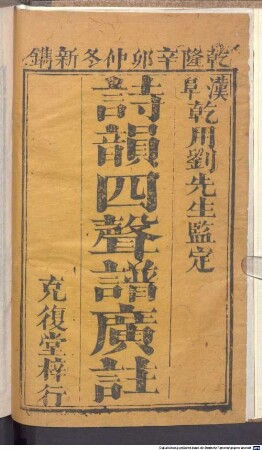 乾隆辛卯仲冬新鐫
漢阜乾用劉先生監定
詩韻四聲譜廣註
克復堂梓行